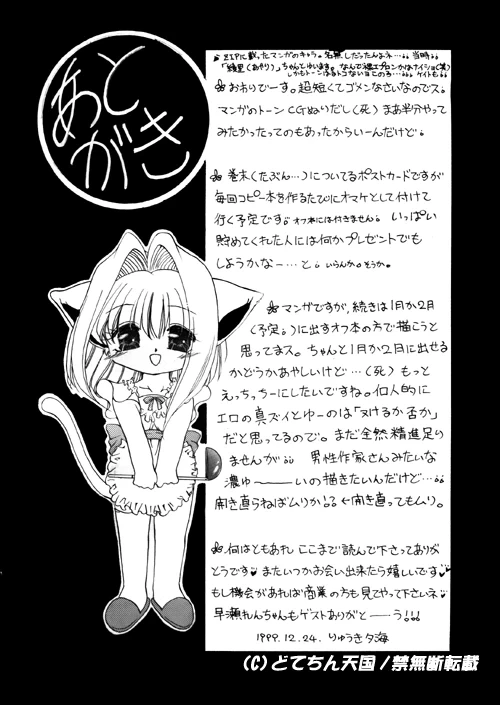 あとがき
ZIPに載ったマンガのキャラ。名無しだったんよネ…当時
「綾里(あやり)」ちゃんとゆいます。なんで裸エプロンかはナイショ(笑)
しかもトーンはるトコないヨこのころ…。ゲイトも
おわりでーす。超短くてゴメンなさいなのでス。
マンガのトーンCGぬいだし(死)まあ半分やって
みたかったってのもあったからいーんだけど。
巻末(たぶん…)についてるポストカードですが
毎回コピー本を作るたびにオマケとして付けて
行く予定です。オフ本には付きません。いっぱい
貯めてくれた人には何かプレゼントでも
しようかなー…と。いらんか。そうか。
マンガですが、続きは1月か2月
(予定。)に出すオフ本の方で描こうと
思ってまス。ちゃんと1月か2月に出せる
かどうかあやしいけど…(死)もっと
えっちぃーにしたいですね。個人的に
エロの真ズイとゆーのは「ヌけるか否か」
だと思ってるので。まだ全然精進足り
ませんが。男性作家さんみたいな
濃ゆ〜いの描きたいんだけど…
開き直らねばムリか!!←開き直ってもムリ。
何はともあれ ここまで読んで下さってありが
とうです♥またいつかお会い出来たら嬉しいです♥
もし機会があれば商業の方も見てやって下さいネ
早瀬れんちゃんもゲストありがと―う!!!
1999.12.24. りゅうき夕海
(C)どてちん天国/禁無断転載